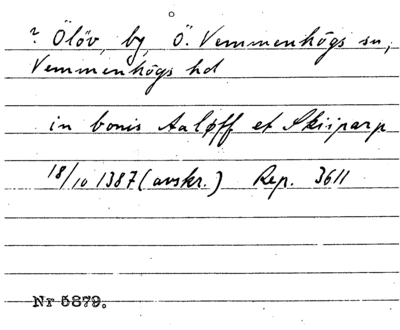 ? Ölöv, by, Ö. Vemmenhögs sn,
Vemmenhögs hd
in bonis Aaløff et Skiiparp
18/10 1387 (avskr.) Rep. 3611
Nr 5879.